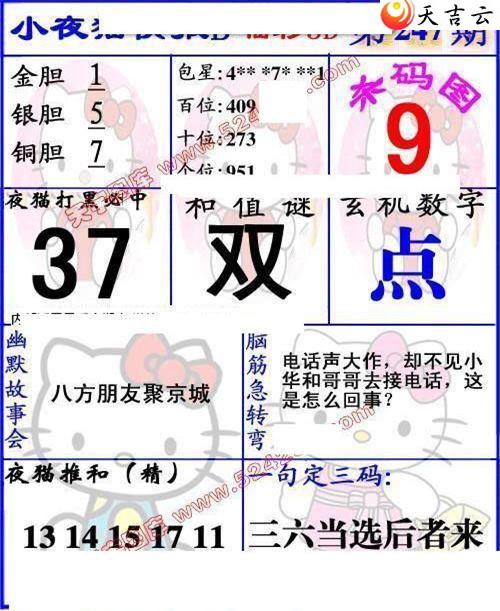 天吉云
小夜猫
福彩3D 第247期
金胆 1
银胆 5
铜胆 7
包星:4** *7* **1
百位:409
十位:273
个位:951
杀码图
9
夜猫打黑必中
37
和值谜
双
玄机数字
点
幽默故事会
八方朋友聚京城
脑筋急转弯
电话声大作，却不见小
华和哥哥去接电话，这
是怎么回事?
夜猫推和(精)
13 14 15 17 11
一句定三码:
三六当选后者来